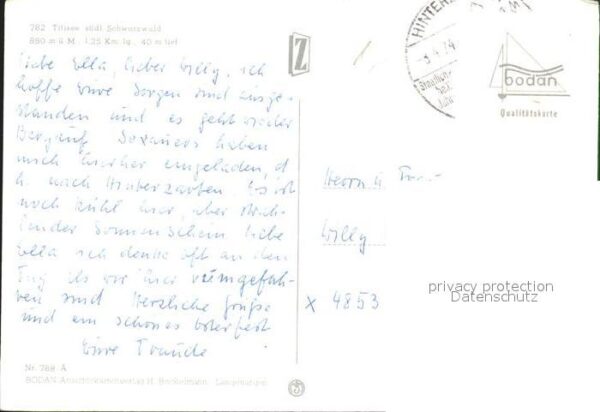 782 Titisee südl. Schwarzwald
850 m ü. M. 1,25 Km. lg. 40 m tief
Liebe Ella, lieber Willy, ich
hoffe Eure Sorgen sind ausge-
standen und es geht wieder
Bergauf. haben
mich hierher eingeladen, d.
h. nach Hinterzarten. Es ist
noch Kühl hier, aber strah-
lender Sonnenschein. Liebe
Ella ich denke oft an den
Tag als wir hier rumgefah-
ren sind. Herzliche Grüße
und ein schönes Osterfest
Eure Traude
Nr. 768 A
BODAN Ansichtskartenverlag H.
Z
HINTERZ
3.4.74
bodan
Qualitätskarte
Herrn u. Frau
Willy
x 4853
privacy protection
Datenschutz